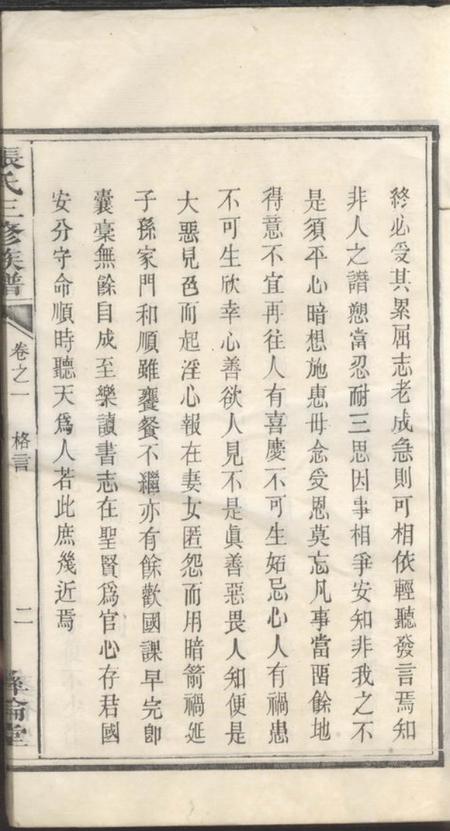 終必受其累屈志老成急則可相依輕聽發言焉知
非人之譖愬當忍耐三思因事相爭安知非我之不
是須平心暗想施惠毋念受恩莫忘凡事當畱餘地
得意不宜再往人有喜慶不可生妬忌心人有禍患
不可生欣幸心善欲人見不是眞善惡畏人知便是
大惡見色而起淫心報在妻女匿怨而用暗箭禍延
子孫家門和順雖饔餐不繼亦有餘歡國課早完卽
囊槖無餘自成至樂讀書志在聖賢爲官心存君國
安分守命順時聽天爲人若此庶幾近焉
張氏三修族譜
卷之一
格言
二
倫堂